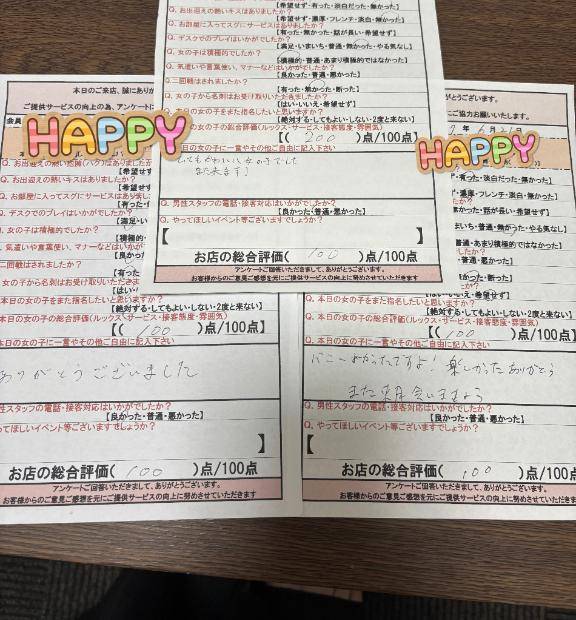 【希望せず・有った・淡白だった・無かった】
Q. お出迎えの熱いキスはありましたか?
【希望せず・濃厚・フレンチ・淡白・無かった】
【有った・無かった・話が長い・希望せず】
Q. デスクでのプレイはいかがでしたか?
【満足・いまいち・普通・無かった・やる気なし】
Q. 女の子は積極的でしたか?
【積極的・普通・あまり積極的ではなかった】
Q. 気遣いや言葉使い、マナーなどはいかがでしたか?
【良かった・普通・悪かった】
Q. 二回戦はされましたか?
【有った・無かった・断った】
Q. 女の子から名刺はお受け取りいただきましたか?
【はい・いいえ・希望せず】
【絶対する・してもよい・しない・2度と来ない】
の女の子の総合評価(ルックス・サービス・接客態度・雰囲気)
【( 100 )点/100点】
本日の女の子に一言やその他ご自由に記入下さい
また来ます!
Q. 男性スタッフの電話・接客対応はいかがでしたか?
【良かった・普通・悪かった】
Q. やってほしいイベント等ございますでしょうか?
【 】
お店の総合評価( 100 )点/100点
アンケートご回答いただきまして、ありがとうございます。
お客様からのご意見ご感想を元にご提供サービスの向上に努めさせていただきます
本日のご来店、誠にありが
ご提供サービスの向上の為、アンケートに
HAPPY
【希望せ
Q. お出迎えの熱いキスはありましたか?
【希望せず
Q. お部屋に入ってスグにサービスはありまし
【有った・
Q. デスクでのプレイはいかがでしたか?
【満足・い
Q. 女の子は積極的でしたか?
【積極的・
Q. 気遣いや言葉使い、マナーなどはいかがで
【良かっ
二回戦はされましたか?
【有った
女の子から名刺はお受け取りいただきま
【はい・
本日の女の子をまた指名したいと思いますか?
【絶対する・してもよい・しない・2度と来ない】
本日の女の子の総合評価(ルックス・サービス・接客態度・雰囲気)
【( 100 )点/100点】
本日の女の子に一言やその他ご自由に記入下さい
ありがとうございました
性スタッフの電話・接客対応はいかがでしたか?
【良かった・普通・悪かった】
ってほしいイベント等ございますでしょうか?
】
お店の総合評価( 100 )点/100点
アンケートご回答いただきまして、ありがとうございます。
お客様からのご意見ご感想を元にご提供サービスの向上に努めさせていただきます
がとうございます。
ご協力お願いいたします。
HAPPY
・有った・淡白だった・無かった】
・濃厚・フレンチ・淡白・無かった】
無かった・話が長い・希望せず】
まいち・普通・無かった・やる気なし】
普通・あまり積極的ではなかった】
・普通・悪かった】
無かった・断った】
いいえ・希望せず】
Q. 本日の女の子をまた指名したいと思いますか?
【絶対する・してもよい・しない・2度と来ない】
Q. 本日の女の子の総合評価(ルックス・サービス・接客態度・雰囲気)
【( 100 )点/100点】
Q. 本日の女の子に一言やその他ご自由に記入下さい
楽しかった ありがとう
また来月会いましょう
Q. 男性スタッフの電話・接客対応はいかがでしたか?
【良かった・普通・悪かった】
Q. やってほしいイベント等ございますでしょうか?
【
お店の総合評価( 100 )点/100点
アンケートご回答いただきまして、ありがとうございます。
お客様からのご意見ご感想を元にご提供サービスの向上に努めさせていただきます